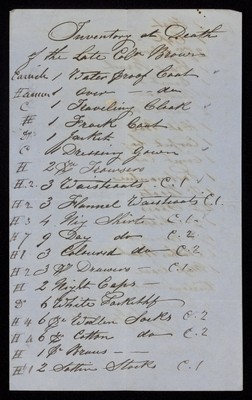 Inventory at Death
of the Late Coln Brown
Carrick 1 Water proof Coat "
1 over -- do
C 1 Traveling Cloak
H 1 Frock Coat "
do 1 Jacket
C 1 Dressing Gown "
H 2 Pr Trowsers
H 2. 3 Waistcoats C. 1
H 2 3 Flannel Waistcoats C 1.
H 3 4 Nig Shirts C. 1
H 7 9 Day do C. 2
H 1 3 Coloured do C. 2
H 2 3 Pr Drawers C. 1
H 2 Night Caps -
do 6 White Pocket
H 4 6 Pr Wollen Socks C. 2
H 4 6 Pr Cotton do C. 2
H 1 Pr Braces - -
H 1 2 Satin Stocks C. 1